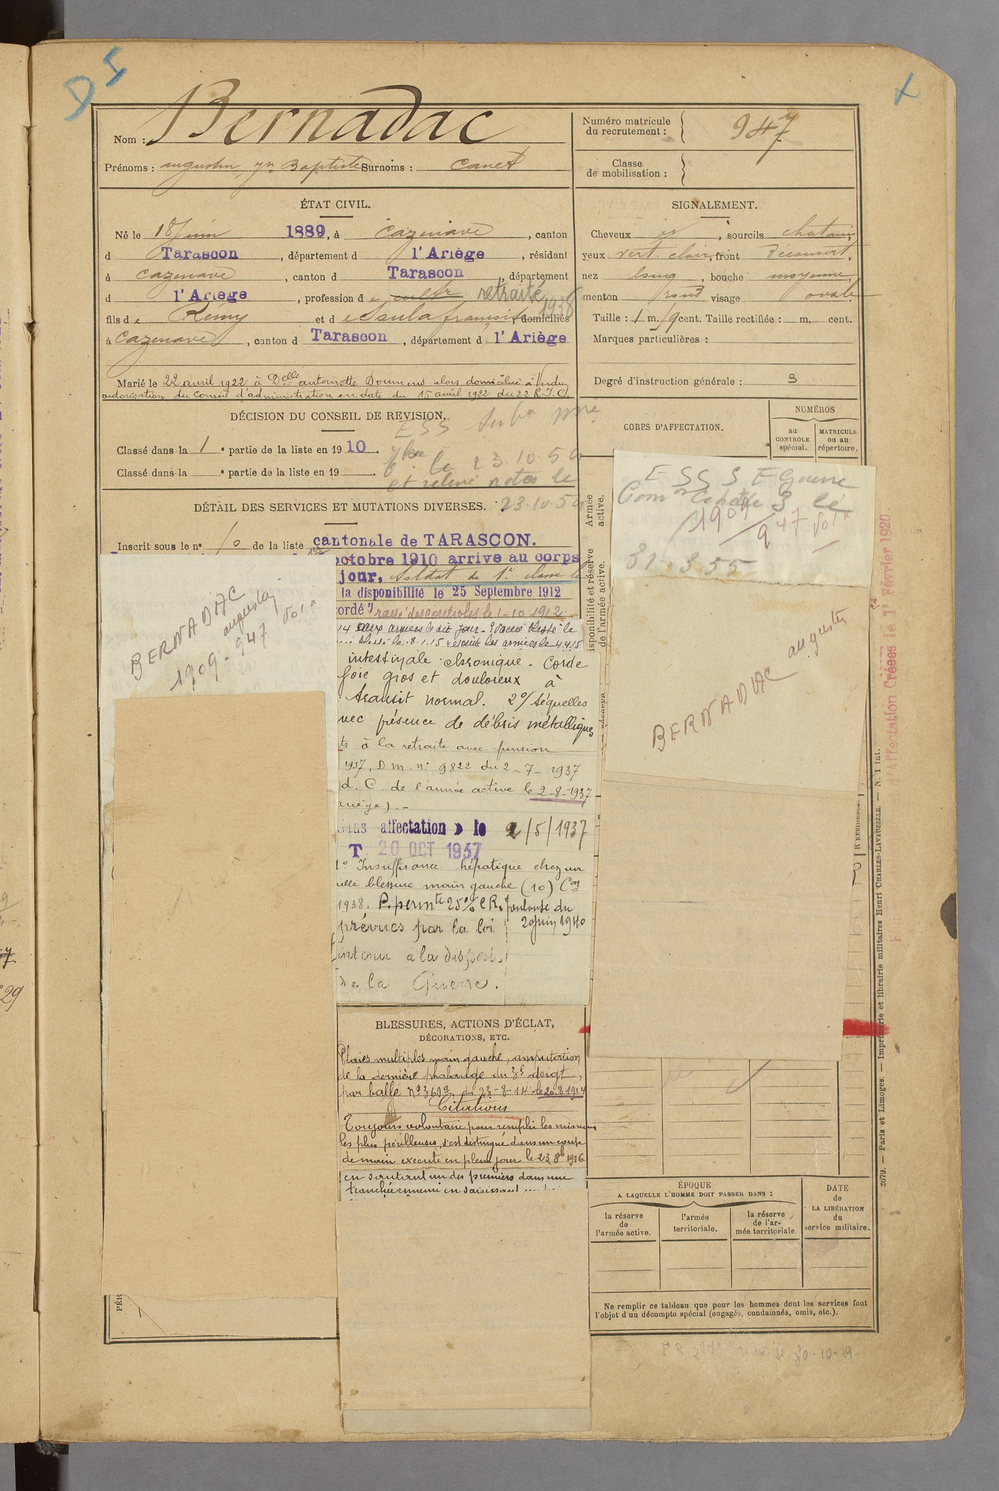 DI
Nom : Bernadac
Prénoms : augustin, Jn Baptiste Surnoms : Canet
Numéro matricule
du recrutement : 947
Classe
de mobilisation :
ÉTAT CIVIL.
Né le 18 juin 1889, à Cazenave, canton
d Tarascon, département d l'Ariège, résidant
à Cazenave, canton d Tarascon, département
d l'Ariège, profession d retraité 1938
fils d e Rémy et d e françoise domiciliés
à Cazenave, canton d Tarascon, département d l'Ariège
Marié le 22 avril 1922 à Delle antoinette alors domiciliée à
autorisation du Conseil d'administration en date du 15 avril 1922 du 22 R.I.C.
SIGNALEMENT.
Cheveux, sourcils chatains
yeux vert clair, front découvert,
nez long, bouche moyenne,
menton rond visage ovale
Taille : 1 m. cent. Taille rectifiée : m. cent.
Marques particulières :
Degré d'instruction générale : 3
DÉCISION DU CONSEIL DE REVISION.
Classé dans la 1e partie de la liste en 1910
Classé dans la e partie de la liste en 19
ESS
le 23.10.54
et relevé notes le
23.10.54
CORPS D'AFFECTATION.
NUMÉROS
au
CONTROLE
spécial.
MATRICULE
ou au
répertoire.
DÉTAIL DES SERVICES ET MUTATIONS DIVERSES.
Inscrit sous le n° 10 de la liste cantonale de TARASCON.
octobre 1910 arrive au corps
jour, soldat de 1e classe le
la disponibilité le 25 Septembre 1912
ordé" rayé des controles le 1-10 1912
14 aux armées le dit jour. Evacué blessé le
le 8.1.15 le 4.4.15
intestinale chronique. Corde
foie gros et douloureux à
transit normal. 2°/ Séquelles
vec présence de débris métalliques
à la retraite avec pension
1937, D.M. n° 9822 du 2-7-1937
d. C. de l'armée active le 2-8-1937
riège).-
Sans affectation » le 2/5/1937
T 20 OCT 1937
1° Insuffisance hépatique chez un
uelle blessure main gauche (10) Con
1938. P. permte 25% C.R. Toulouse du
prévues par la loi 20 juin 1940
intenu à la disposi.
de la Guerre.
BERNADAC
augustin
1909 - 947 Vol
ESS S E Guerre
1909
947 Vol
31.3.55
BERNADAC augustin
Armée
active.
Disponibilité et réserve
de l'armée active.
Affectation Créées le 1r Février 1920
BLESSURES, ACTIONS D'ÉCLAT,
DÉCORATIONS, ETC.
Plaies multiples main gauche, amputation
de la dernière phalange du 3e doigt,
par balle n° 3602 du 23-8-14
Citations
Toujours volontaire pour remplir les missions
les plus périlleuses, s'est distingué dans un coup
de main exécuté en plein jour le 23 8 1916
en sautant un des premiers dans une
tranchée ennemie en saisissant
ÉPOQUE
A LAQUELLE L'HOMME DOIT PASSER DANS :
la réserve
de
l'armée active.
l'armée
territoriale.
la réserve
de l'ar-
mée territoriale
DATE
de
LA LIBÉRATION
du
service militaire.
Ne remplir ce tableau que pour les hommes dont les services font
l'objet d'un décompte spécial (engagés, condamnés, omis, etc.).
2079. — Paris et Limoges. — Imprimerie et librairie militaires Henri CHARLES-LAVAUZELLE. — N. 1 int.
PÉR